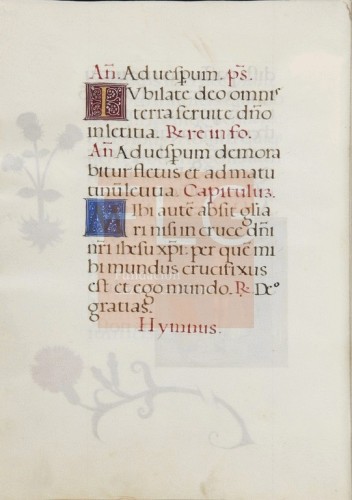 Añ. Ad uesp̃um. p̃s.
IVbilate deo omnis
terra seruite dño
in letitia. R. re in fo.
Añ. Ad uesp̃um demora
bitur fletus et ad matu
tinũ letitia Capitulũ.
MIhi autẽ absit glia
ri nisi in cruce dñi
nr̃i ihesu xp̃i: per quẽ mi
hi mundus crucifixus
est et ego mundo. R. Deo
gratias.
Hymnus.